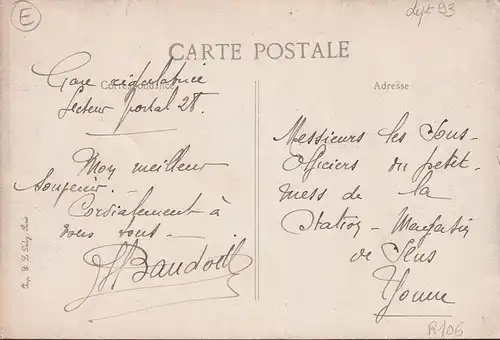 E
dept 93
CARTE POSTALE
Correspondance
Adresse
Gare régulatrice
Secteur postal 28
Mon meilleur
souvenir.
Cordialement à
vous tous
Baudot
Messieurs les Sous-
Officiers du petit-
mess de la
Station-Magasin
de Sens
Yonne
R106